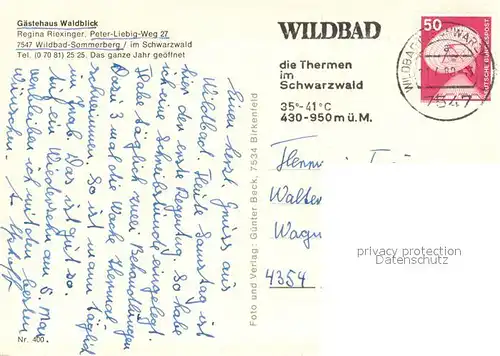 Gästehaus Waldblick
Regina Riexinger, Peter-Liebig-Weg 27
7547 Wildbad-Sommerberg / im Schwarzwald
Tel. (0 70 81) 25 25. Das ganze Jahr geöffnet
Einen herzl. Gruss aus
Wildbad. Heute Samstag ist
hier der erste Regentag. So habe
ich eine Schreibstunde eingelegt.
Habe täglich zwei Behandlungen
Dazu 3 mal die Woche Thermal
schwimmen. So ist man täglich
in Trab. Das ist gut so.
Auf ein Wiedersehn am 6. Mai
verbleibe ich mit den besten
Wünschen
Nr. 400
Foto und Verlag: Günter Beck, 7534 Birkenfeld
WILDBAD
die Thermen
im
Schwarzwald
35°-41°C
430-950 m ü.M.
50
DEUTSCHE BUNDESPOST
WILDBAD
7547
Walter
4354
privacy protection
Datenschutz